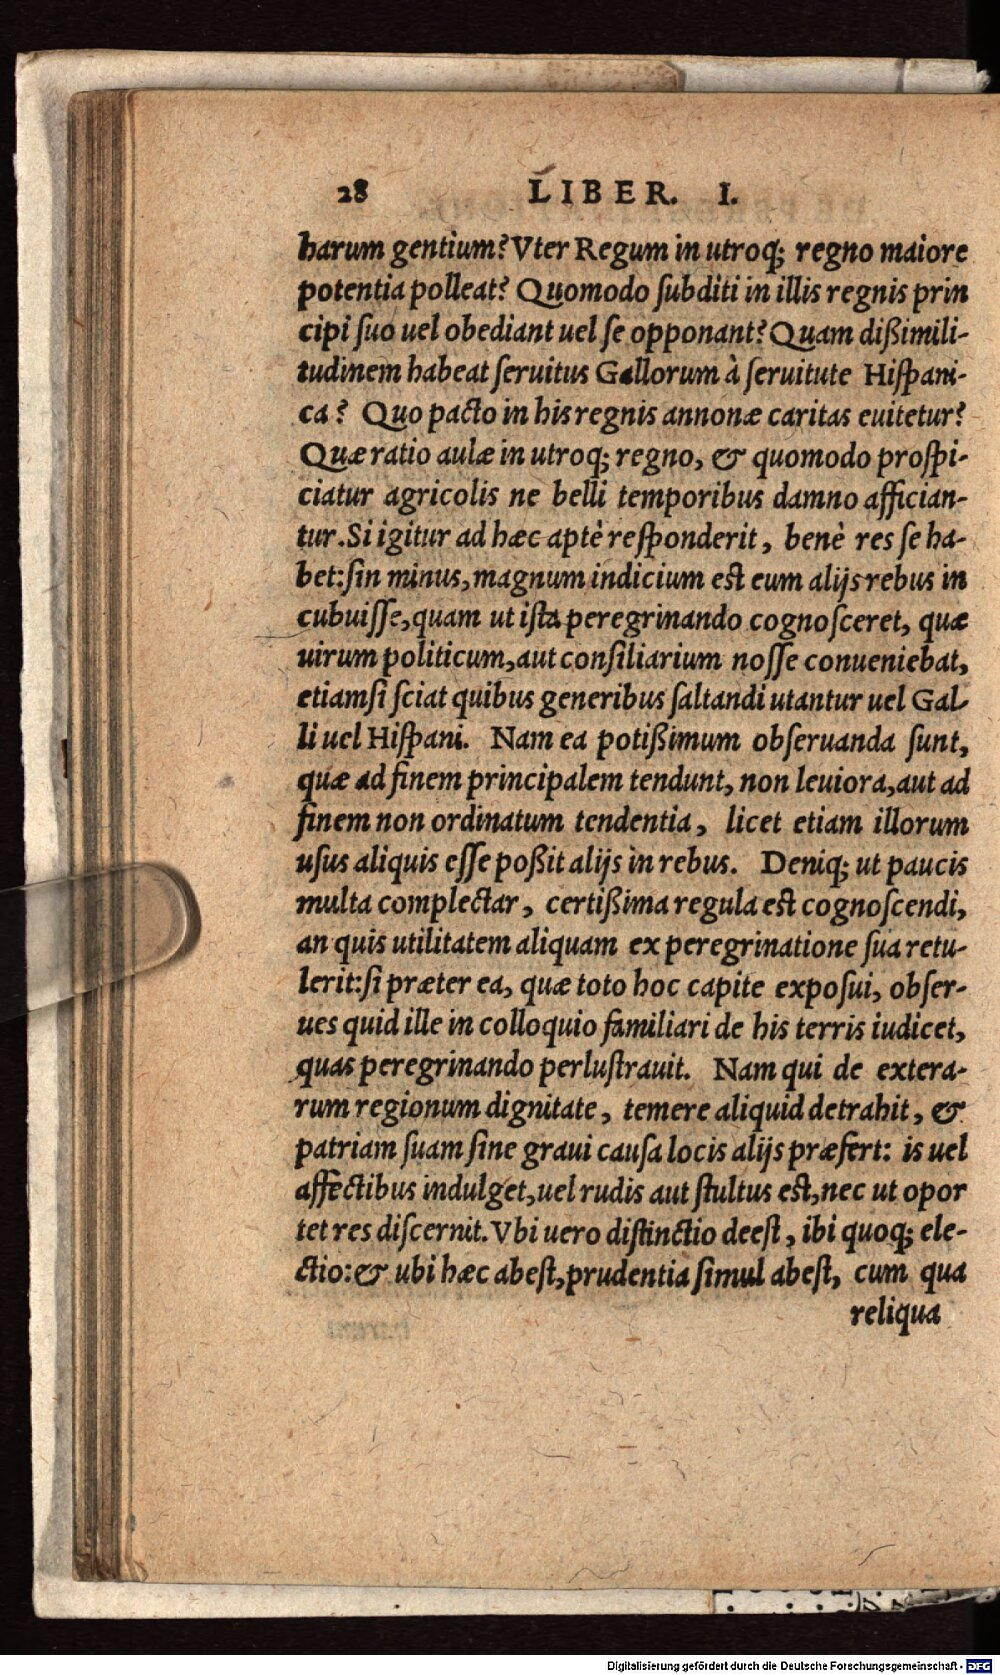 28 LIBER. I.
harum gentium? Vter Regum in utroq; regno maiore
potentia polleat? Quomodo ſubditi in illis regnis prin
cipi ſuo uel obediant uel ſe opponant? Quam dißimili-
tudinem habeat ſeruitus Gallorum à ſeruitute Hiſpani-
ca? Quo pacto in his regnis annonæ caritas euitetur?
Quæ ratio aulæ in utroq; regno, & quomodo proſpi-
ciatur agricolis ne belli temporibus damno affician-
tur. Si igitur ad hæc aptè reſponderit, benè res ſe ha-
bet: ſin minus, magnum indicium est eum alijs rebus in
cubuiſſe, quam ut iſta peregrinando cognoſceret, quæ
uirum politicum, aut conſiliarium noſſe conueniebat,
etiamſi ſciat quibus generibus ſaltandi utantur uel Gal-
li uel Hiſpani. Nam ea potißimum obſeruanda ſunt,
quæ ad finem principalem tendunt, non leuiora, aut ad
finem non ordinatum tendentia, licet etiam illorum
uſus aliquis eſſe poßit alijs in rebus. Deniq; ut paucis
multa complectar, certißima regula est cognoſcendi,
an quis utilitatem aliquam ex peregrinatione ſua retu-
lerit: ſi præter ea, quæ toto hoc capite expoſui, obſer-
ues quid ille in colloquio familiari de his terris iudicet,
quas peregrinando perluſtrauit. Nam qui de extera-
rum regionum dignitate, temere aliquid detrahit, &
patriam ſuam ſine graui cauſa locis alijs præfert: is uel
affectibus indulget, uel rudis aut ſtultus est, nec ut opor
tet res diſcernit. Vbi uero diſtinctio deeſt, ibi quoq; ele-
ctio: & ubi hæc abeſt, prudentia ſimul abeſt, cum qua
reliqua
Digitalisierung gefördert durch die Deutsche Forschungsgemeinschaft - DFG